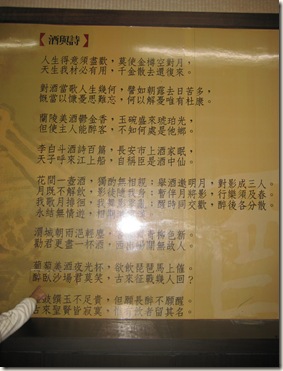 【酒與詩】
人生得意須盡歡，莫使金樽空對月，
天生我材必有用，千金散去還復來。
對酒當歌人生幾何，譬如朝露去日苦多，
慨當以慷憂思難忘，何以解憂唯有杜康。
蘭陵美酒鬱金香，玉碗盛來琥珀光，
但使主人能醉客，不知何處是他鄉。
李白斗酒詩百篇，長安市上酒家眠，
天子呼來不上船，自稱臣是酒中仙。
花間一壺酒，獨酌無相親；舉酒邀明月，對影成三人。
月既不解飲，影徒隨我身；暫伴月將影，行樂須及春。
我歌月徘徊，我舞影零亂；醒時同交歡，醉後各分散。
永結無情遊，相期邈雲漢。
渭城朝雨浥輕塵，青青柳色新，
勸君更盡一杯酒，西出陽關無故人。
葡萄美酒夜光杯，欲飲琵琶馬上催。
醉臥沙場君莫笑，古來征戰幾人回？
鼓饌玉不足貴，但願長醉不願醒，
古來聖賢皆寂寞，有飲者留其名。